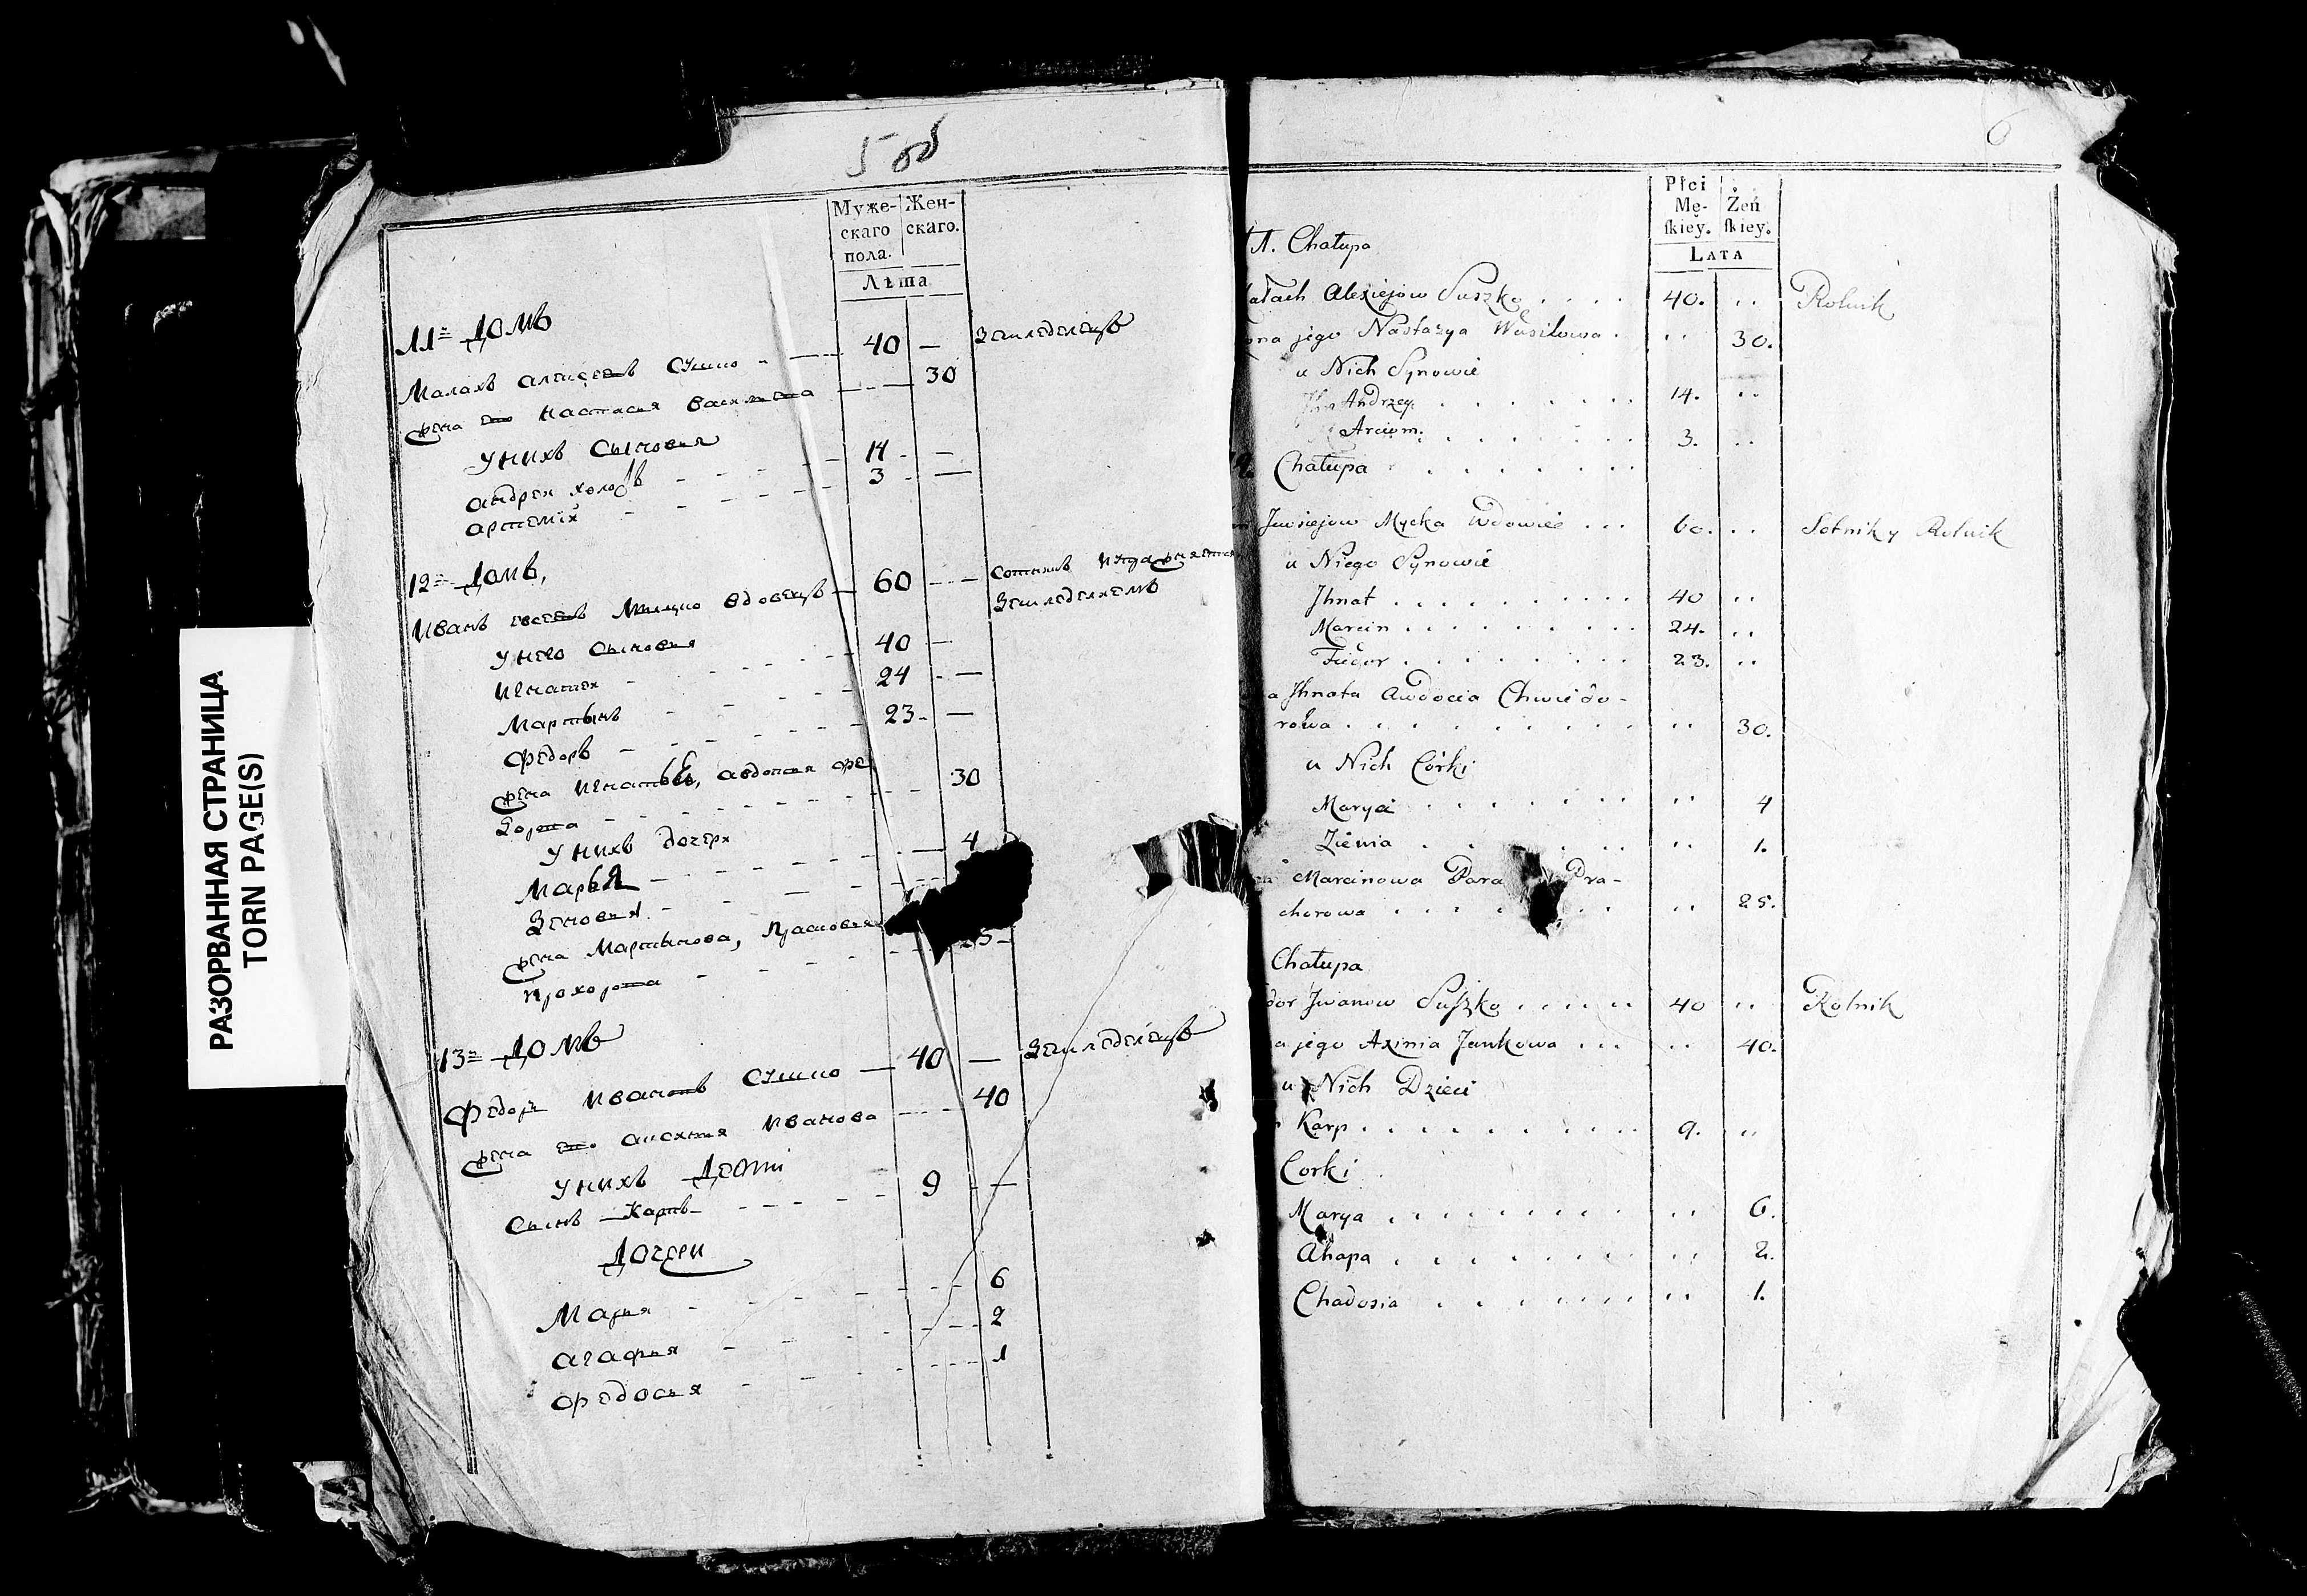 РАЗОРВАННАЯ СТРАНИЦА
TORN PAGE(S)
5 об
Муже-
скаго
пола.
Жен-
скаго.
Лѣта
11 = Домъ
Малахъ алексеевъ Сушко 40 — Земледелецъ
жена его настасия василева 30
у нихъ Сыновья
андреи холостъ 14 —
артемїй 3 —
12 = Домъ,
Иванъ евсеевъ Мицко вдовецъ — 60 — Сотникъ
земледелиемъ
у него Сыновья
игнатеи 40 —
Мартынъ 24 —
Федоръ 23 —
жена игнатьева, авдотия Фе
дорова 30
у нихъ дочери
Марья 4
Зеновия
жена Мартынова, Прасковия
прохорова
13 = Домъ
Федоръ Ивановъ Сушко — 40 — Земледелецъ
жена его аксиния Иванова 40
у нихъ Дети
Сынъ Карпъ 9 —
Дочери
Марья 6
агафия 2
федосия 1
6
Płci
Mę-
ſkiey.
Żeń
ſkiey.
LATA
Chałupa
ałach Alexiejow Suszko 40. Rolnik
ona jego Nastazya Wasilowa 30.
u Nich Synowie
Andrzey 14.
Arciom. 3.
Chałupa
Jewsiejow Mycka Wdowiec 60. Sotnik y Rolnik
u Niego Synowie
Jhnat 40
Marcin 24.
Fiedor 23.
a Jhnata Awdocia Chwiedo-
rowa 30.
u Nich Córki
Marya 4
Zienia 1.
Marcinowa Para Pra-
chorowa 25.
Chałupa
dor Jwanow Suſzko 40 Rolnik
a jego Axinia Jankowa 40.
u Nich Dzieci
Karp 9.
Corki
Marya 6.
Ahapa 2.
Chadosia 1.